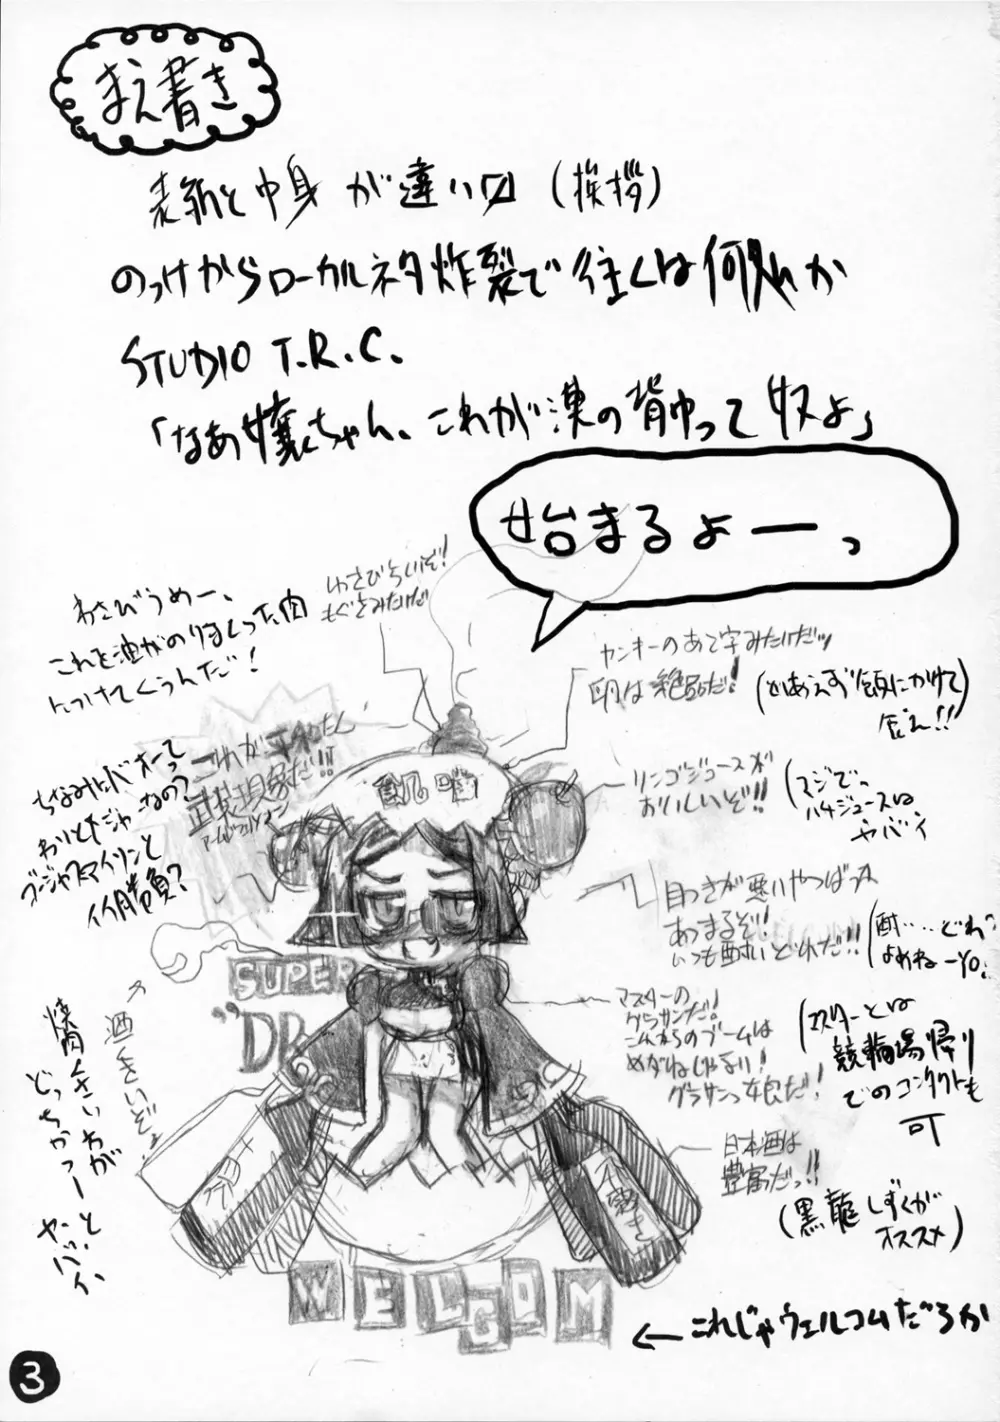 まえ書き
表紙と中身が違い〼 (挨拶)
のっけからローカルネタ炸裂で往くは何処か
STUDIO T.R.C.
「なあ嬢ちゃん、これが漢の背中って奴よ」
始まるよーっ
わさびらいぞ!
もぐさみたいだ
わさびうめー、
これを油がのりまくった肉
につけてくうんだ!
ヤンキーのあて字みたいだッ
卵は絶品だ!
(とりあえず頭にかけて
食え!!
ちなみにバオーって
わりとドジャ なの?
ゴージャスアイリンと
イイ勝負?
これが
武装現象だ!!
アームドフェノメノン
リンゴジュースが
おいしいぞ!!
(マジで。
ハチジュースは
ヤバイ
目つきが悪いやつばっか
あつまるぞ!
いつも酔いどれだ!!
(酎……どれ?
よめねーYO!
マスターの
グラサンだ!
これからのブームは
めがねじゃない!
グラサンっ娘だ!
(マスターとは
競輪場帰り
でのコンタクトも
可
日本酒は
豊富だっ!!
(黒龍しずくが
オススメ)
酒くさいぞ!
焼肉くさいわが
どっちかっつーと
ヤバイ
SUPER
"DR
WELCOM
←これじゃウェルコムだろが
3